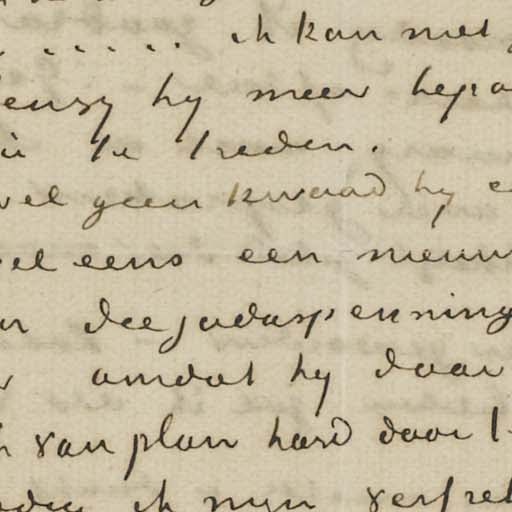 ..... ik kan met
tensy hy meer bepa
te treden.
wel geen kwaad hy e
wel eens een nieuw
die judaspenning
omdat hy daar
ik van plan hard door
ik myn